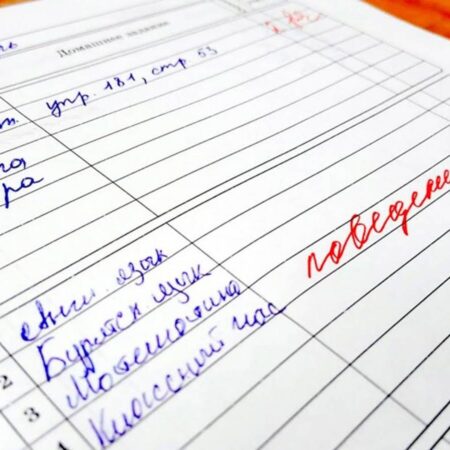 Домашнее задание
упр. 181, стр 53
ра
Англ. язык
поведени
2 Бурятск язык
3 Математика
Классный час